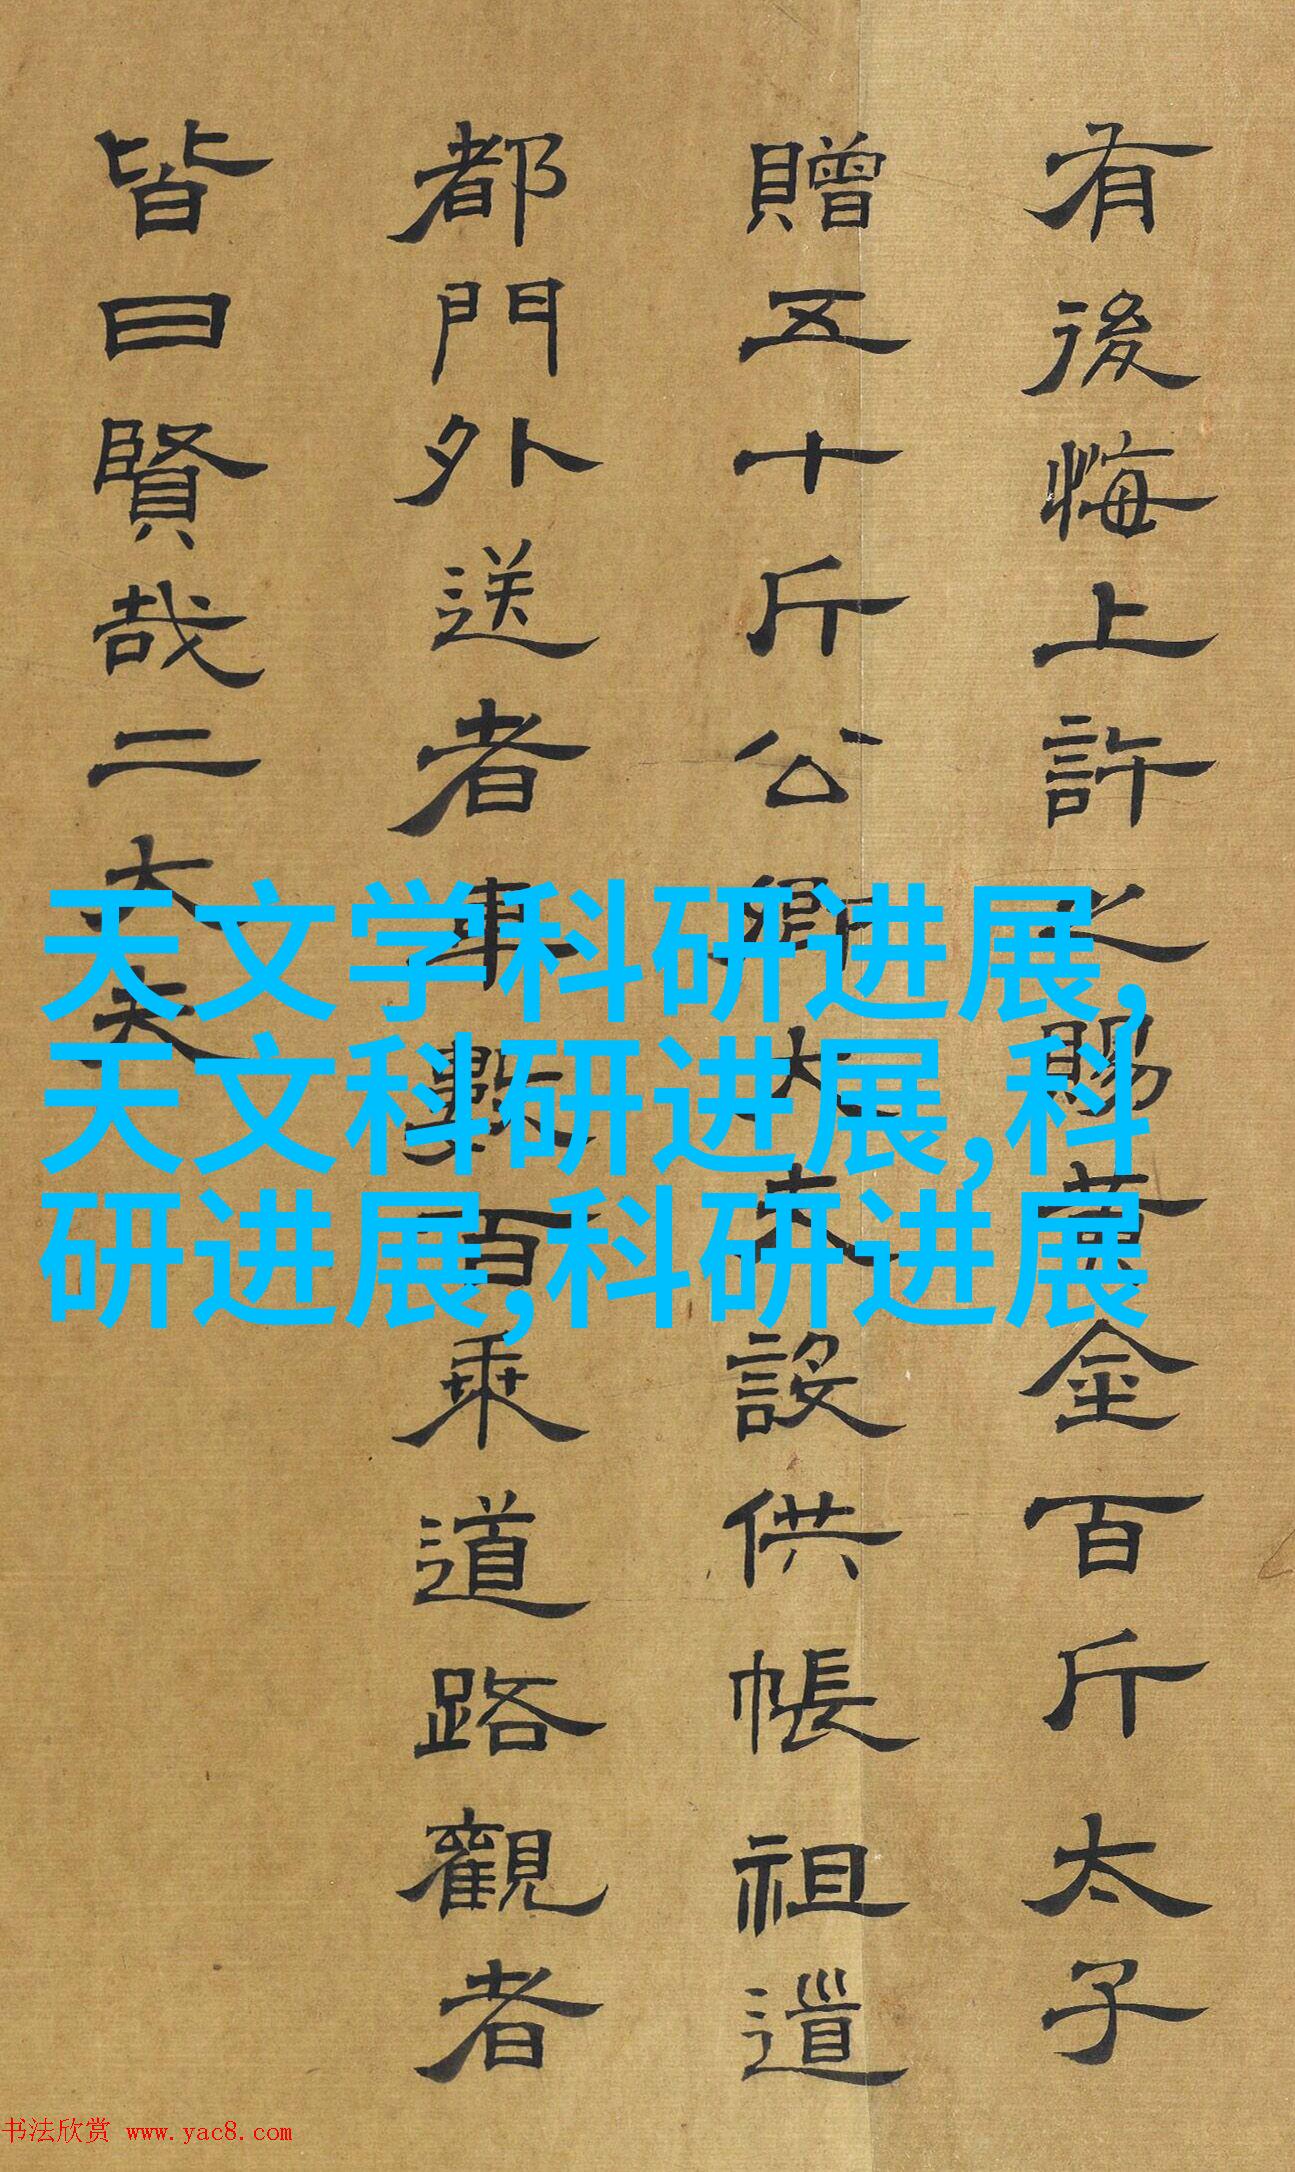 有後悔上許之賜黃金百斤太子
贈五十斤公卿大夫設供帳祖道
都門外送者車數百乘道路觀者
皆曰賢哉二大夫
天文学科研进展,
天文科研进展,科
研进展,科研进展
书法欣赏 www.yac8.com